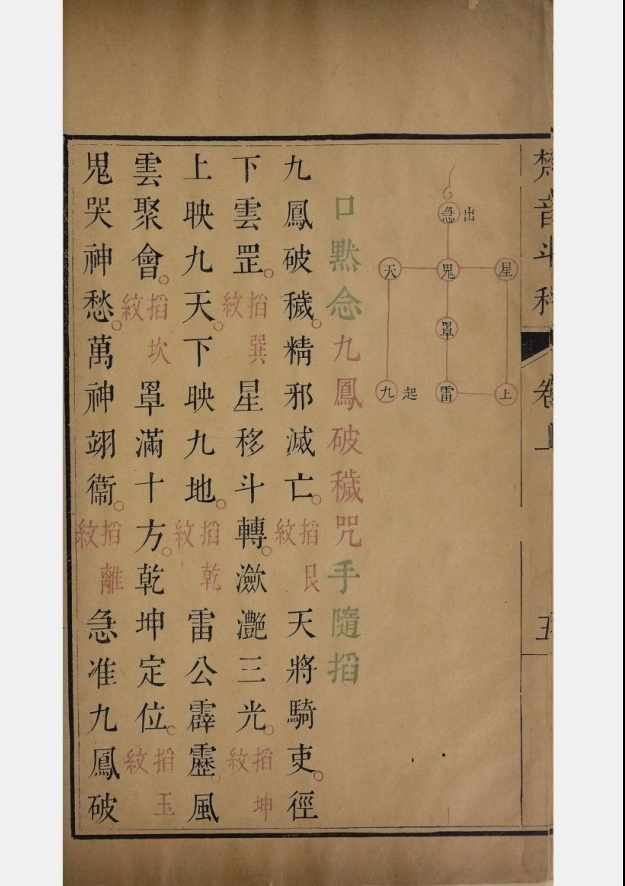 梵音斗科 卷上 五
急 出
天 鬼 星
罩
九 起 雷 上
口默念九鳳破穢咒手隨搯
九鳳破穢。精邪滅亡。搯艮紋天將騎吏。徑
下雲罡。搯巽紋星移斗轉。瀲灧三光。搯坤紋
上映九天。下映九地。搯乾紋雷公霹靂。風
雲聚會。搯坎紋罩滿十方。乾坤定位。搯玉紋
鬼哭神愁。萬神翊衞。搯離紋急准九鳳破